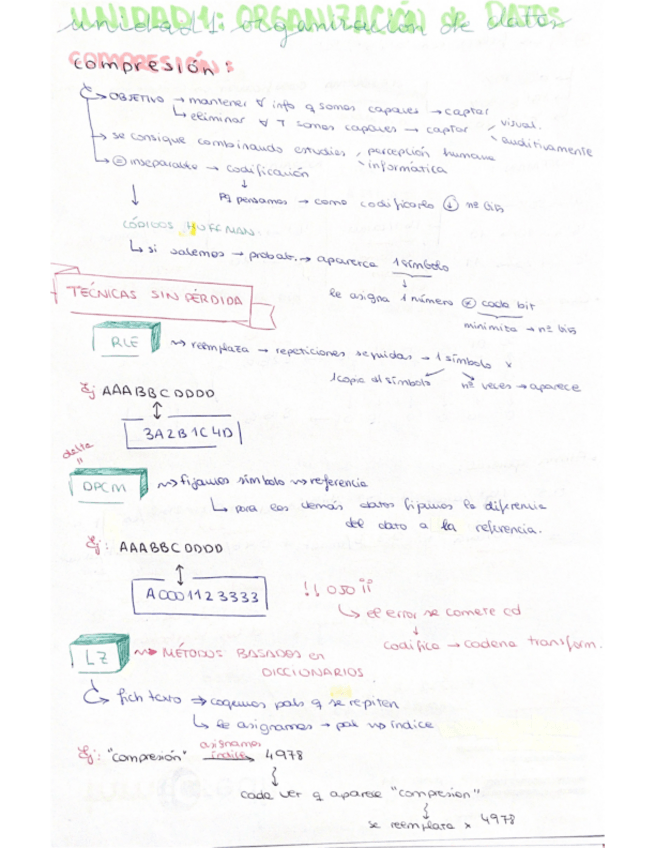 UNIDAD 1: ORGANIZACIÓN de DATOS
unidad 1: organización de datos
COMPRESIÓN:
compresión:
OBJETIVO → mantener ∀ info q somos capaces → captar
↳ eliminar ∀ T somos capaces → captar visual. auditivamente
→ se consigue combinando estudios percepción humana informática
↳ inseparable → codificación
↓
Pq pensamos → como codificarlo ↓ nº bits
CÓDIGOS HUFFMAN.
↳ si sabemos → probab. → aparezca 1 símbolo
↓
le asigna 1 número cada bit
minimiza → nº bits
TÉCNICAS SIN PÉRDIDA
RLE → reemplaza → repeticiones seguidas → 1 símbolo x
1 copia al símbolo nº veces → aparece
Ej AAABBCDDDD
↕
3A2B1C4D
delta
"
DPCM → fijamos símbolo → referencia
↳ para los demás datos fijamos la diferencia
del dato a la referencia.
Ej: AAABBCDDDD
↕
A0001123333
!! OJO !!
↳ el error se comete cd
↓
codifica → cadena transform.
LZ → MÉTODOS BASADOS en
DICCIONARIOS.
fich texto ⇒ cogemos pals q se repiten
↳ le asignamos → pal → índice
Ej: "compresión" asignamos índice → 4978
cada vez q aparece "compresion"
se reemplaza x 4978